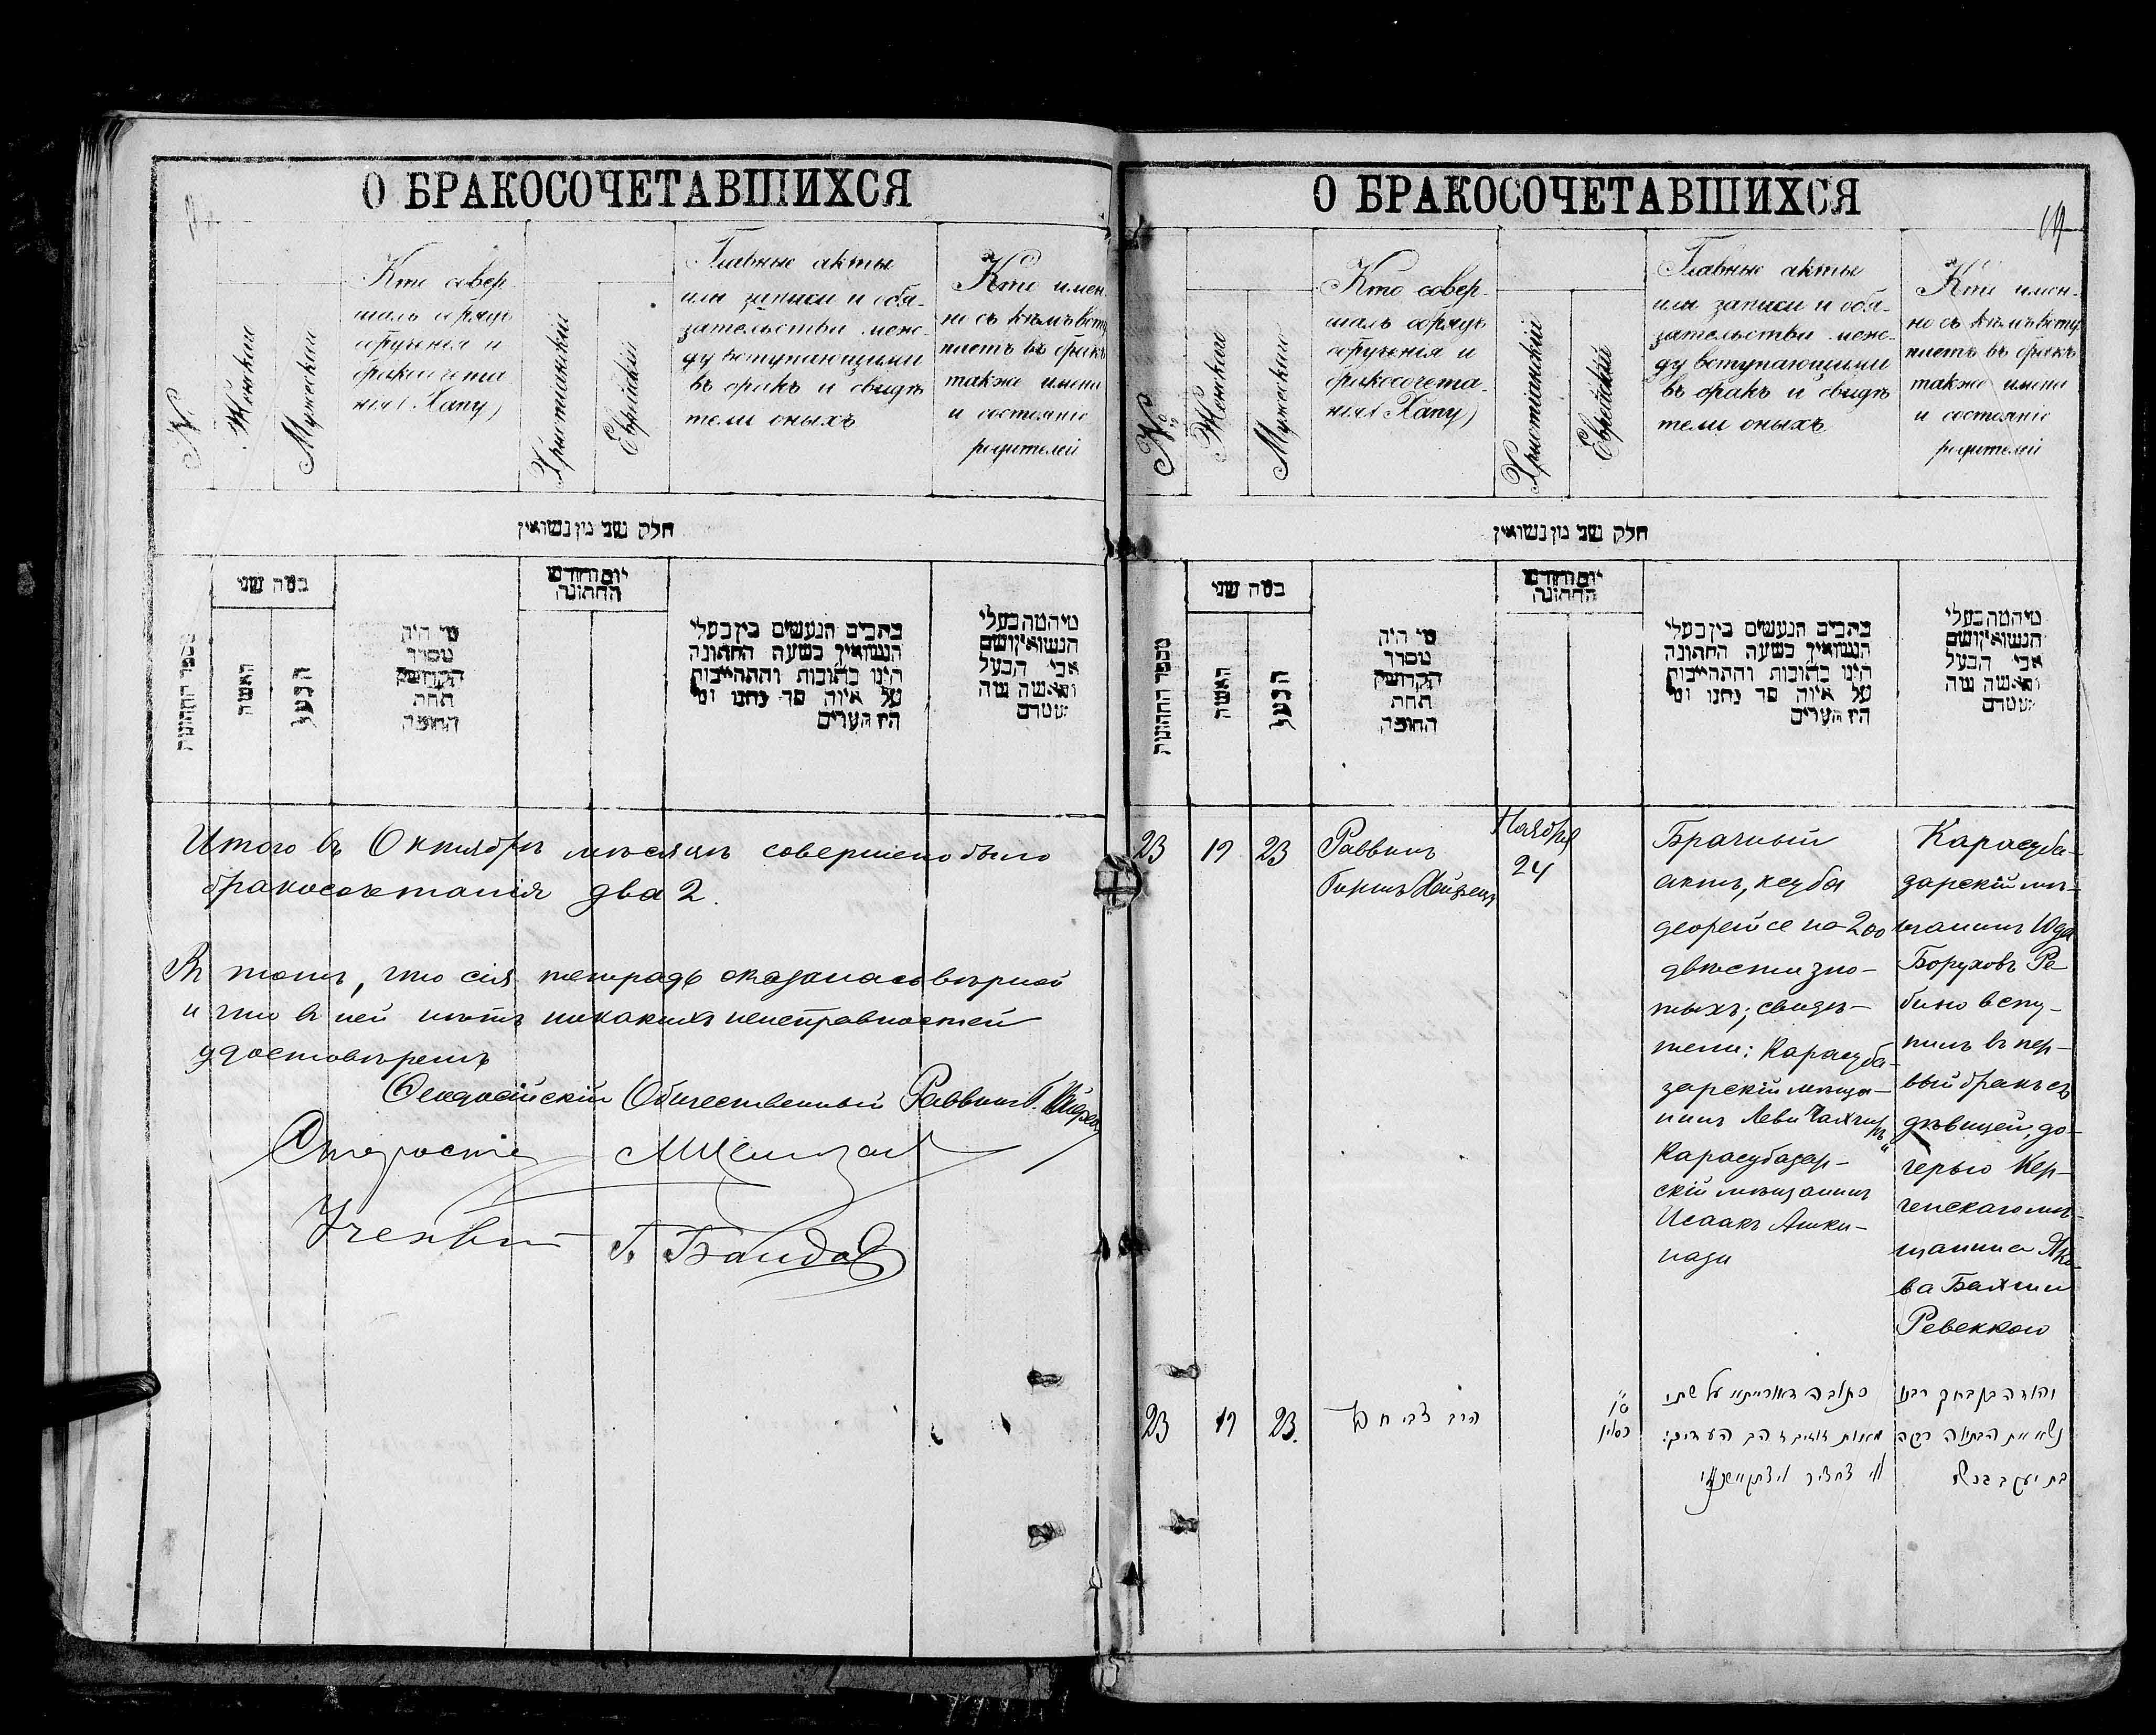 О БРАКОСОЧЕТАВШИХСЯ
№
Женскаи
Мужескаи
Кто совер
шалъ обрядъ
обрученiя и
бракосочета
нiя (Хапу)
Христианскiй
Еврейскiй
Главные акты
или записи и обя-
зательства меж-
ду вступающими
въ бракъ и свидѣ
тели оныхъ
Кто имен
но съ кѣмъ всту
паетъ въ бракъ
также имена
и состоянiе
родителей
חלק שני מן נשואין
מספר החתונות
כמה שני
האשה
הבעל
מי היה
מסדר
הקדושין
תחת
החופה
יום וחודש
החתונה
כתבים הנעשים בין בעלי
הנשואין בשעת החתונה
היינו כתובות והתחייבות
על איזה סך נתנו ומי
היו העדים
מי המה בעלי
הנשואין ושם
אבי הבעל
והאשה ומה
מעמדם
Итого въ Октябрѣ мѣсяцѣ совершено было
бракосочетанiя два 2.
Въ томъ, что сiя тетрадь оказалась вѣрной
и что въ ней нѣтъ никакихъ неисправностей
удостовѣряетъ
Ѳеодосiйскiй Общественный Раввинъ Г. Хейфецъ
Староста
Ученый Г. Баидов
О БРАКОСОЧЕТАВШИХСЯ
№
Женскаи
Мужескаи
Кто совер-
шалъ обрядъ
обрученiя и
бракосочета-
нiя (Хапу)
Христiанскiй
Еврейскiй
Главные акты
или записи и обя-
зательства меж-
ду вступающими
въ бракъ и свидѣ
тели оныхъ
Кто имен-
но съ кѣмъ всту
паетъ въ бракъ
также имена
и состоянiе
родителей
חלק שני מן נשואין
מספר החתונות
כמה שני
האשה
הבעל
מי היה
מסדר
הקדושין
תחת
החופה
יום וחודש
החתונה
כתבים הנעשים בין בעלי
הנשואין בשעת החתונה
היינו כתובות והתחייבות
על איזה סך נתנו ומי
היו העדים
מי המה בעלי
הנשואין ושם
אבי הבעל
והאשה ומה
מעמדם
23
19
23
Раввинъ
Гиршъ Хейфецъ
Ноября
24
Брачный
актъ, ксуба
деорейсе на 200
двѣсти зло-
тыхъ; свидѣ-
тели: Карасуба-
зарскiй мѣща-
нинъ Леви Чахчиръ
Карасубазар-
скiй мѣщанинъ
Исаакъ Ашке-
нази
Карасуба-
зарскiй мѣ-
щанинъ Юда
Боруховъ Ре-
бино всту-
пилъ въ пер-
вый бракъ съ
дѣвицей, до-
черью Кер-
ченскаго мѣ-
щанина Яко-
ва Бакши
Ревеккою
23
19
23.
הרב צבי חפץ
כסלו
כתובה דאורייתא על שתי
מאות זהב העדים:
יהודה בן ברוך רבנו
נשא את הבתולה רבקה
בת יעקב בכשי